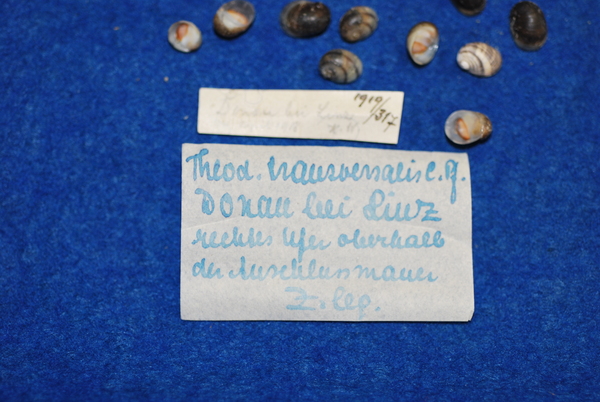 Donau bei Linz 1919/317
Theod. transversalis C. Pf.
Donau bei Linz
rechtes Ufer oberhalb
der Anschlussmauer
Z. leg.